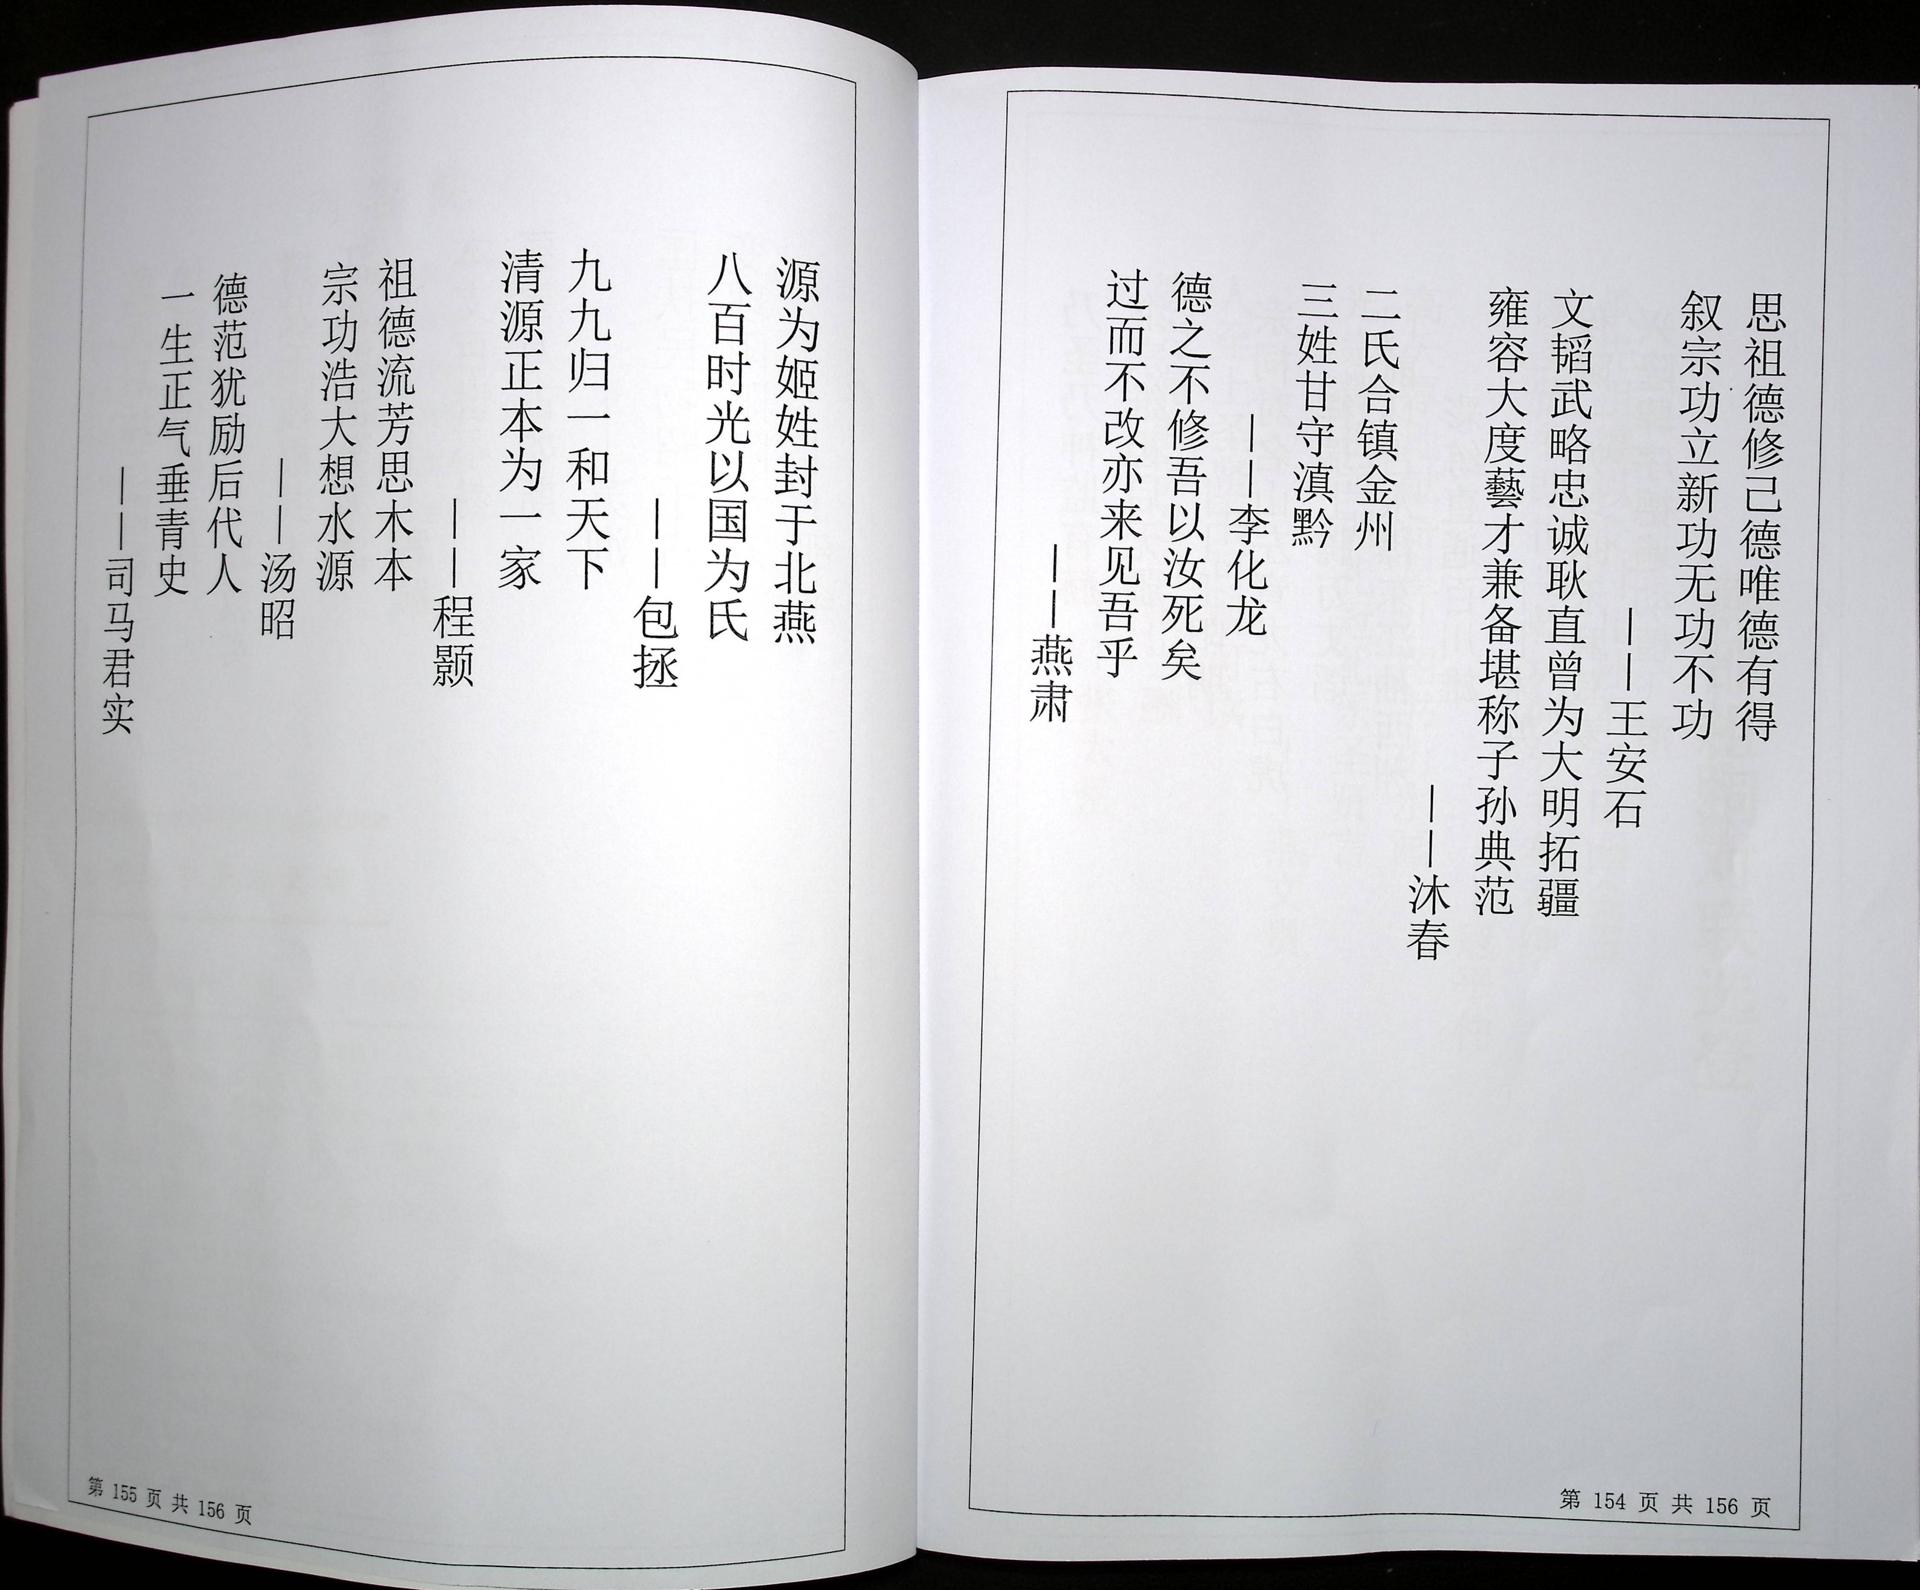 思祖德修己德唯德有得
叙宗功立新功无功不功
——王安石
文韬武略忠诚耿直曾为大明拓疆
雍容大度藝才兼备堪称子孙典范
——沐春
二氏合镇金州
三姓甘守滇黔
——李化龙
德之不修吾以汝死矣
过而不改亦来见吾乎
——燕肃
第 154 页 共 156 页
源为姬姓封于北燕
八百时光以国为氏
——包拯
九九归一和天下
清源正本为一家
——程颢
祖德流芳思木本
宗功浩大想水源
——汤昭
德范犹励后代人
一生正气垂青史
——司马君实
第 155 页 共 156 页